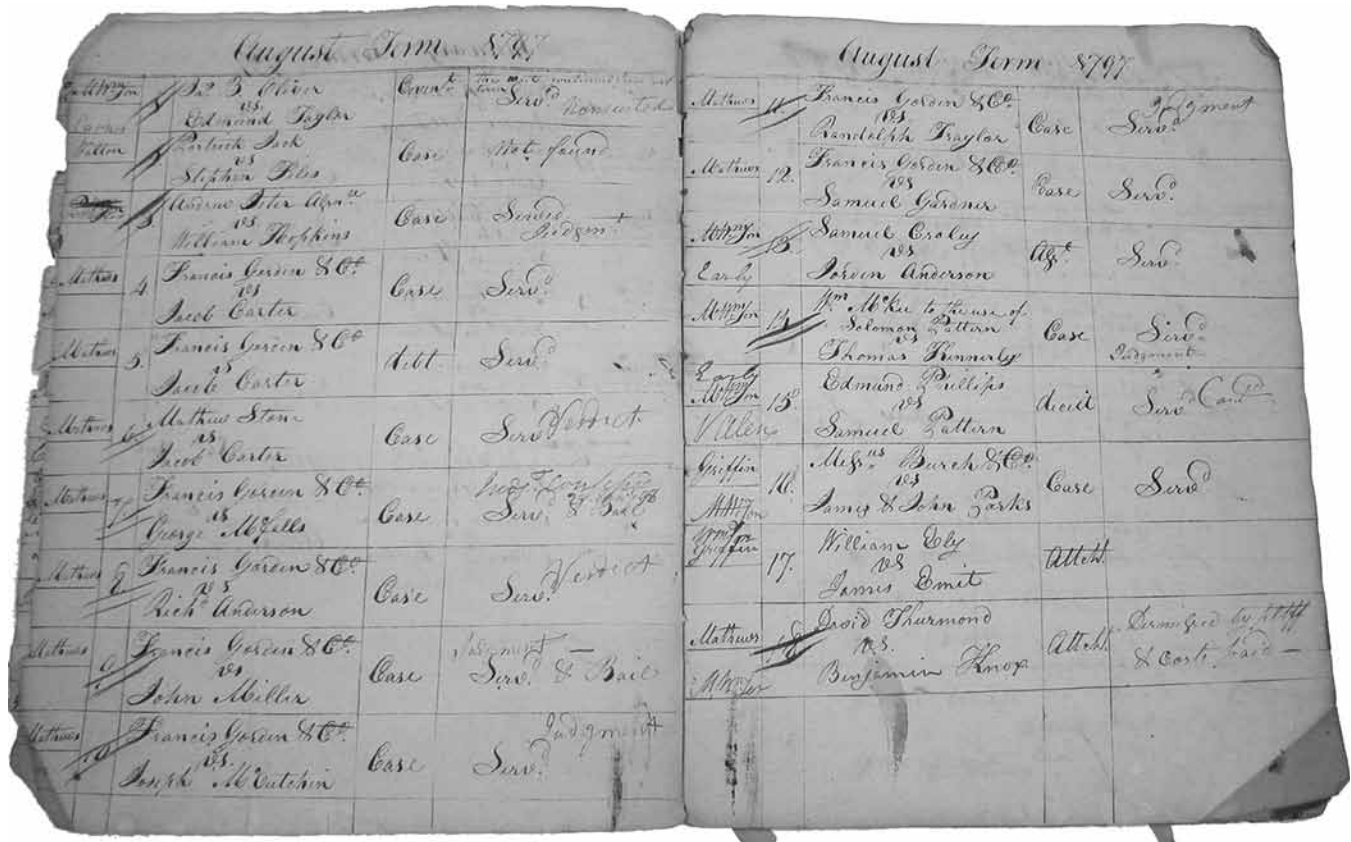 August Term 1797
Jas B Oliver
vs.
Edmund Taylor
Covent
Servd
Nonsuited
Walton
Patrick Jack
vs
Stephen Piles
Case
Not found
3
Andrew Jeter Admr
vs
William Hopkins
Case
Served
Judgmt
Mathews
4.
Francis Gorden & Co.
vs
Jacob Carter
Case
Servd
Mathews
5.
Francis Gorden & Co
vs
Jacob Carter
debt.
Servd
Mathews
6
Mathew Stone
vs
Jacob Carter
Case
Servd Verdict
Mathews
7
Francis Gorden & Co.
vs
George McFalls
Case
Judgt Confessd
Servd & Bail
Mathews
8
Francis Gorden & Co.
vs
Richd Anderson
Case
Verdict
Servd
Mathews
9
Francis Gorden & Co.
vs
John Miller
Case
Judgment
Servd & Bail
Mathews
10
Francis Gorden & Co.
vs.
Joseph McCutchin
Case
Judgment
Servd
August Term 1797
Mathews
11.
Francis Gorden & Co.
vs
Randolph Traylor
Case
Judgment
Servd
Mathews
12.
Francis Gorden & Co.
vs
Samuel Gardner
Case
Servd
13.
Early
Samuel Croley
vs
Jorden Anderson
Servd
14
Wm McKee to the use of
Solomon Pattern
vs
Thomas Kennerly
Case
Servd
Judgment
Early
15
Edmund Phillips
vs
Samuel Pattern
deceit
Servd
Griffin
16.
Messrs Burch & Co.
vs
James & John Parks
Case
Servd
Griffin
17.
William Ely
vs
James Emit
Attcht.
Mathews
18
David Thurmond
vs.
Benjamin Knox
Attcht.
Dismissed by pltff
& Costs Paid —